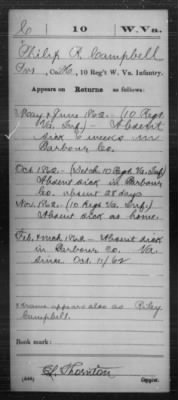 C | 10 | W. Va.
Philip R. Campbell
Pvt., Co. H, 10 Reg't W. Va. Infantry.
Appears on Returns as follows:
May & June 1862 - (10 Regt.
Va. Inf.) - Absent
sick 6 weeks in
Barbour Co.
Oct. 1862 - (Detch. 10 Regt. Va. Inf)
Absent sick in Barbour
Co. absent 28 days
Nov. 1862. (10 Regt. Va. Inf.)
Absent sick at home.
Absent sick
in Barbour Co. Va.
since Oct. 11/62
name appears also as
Campbell.
Book mark:
Thornton
Copyist.